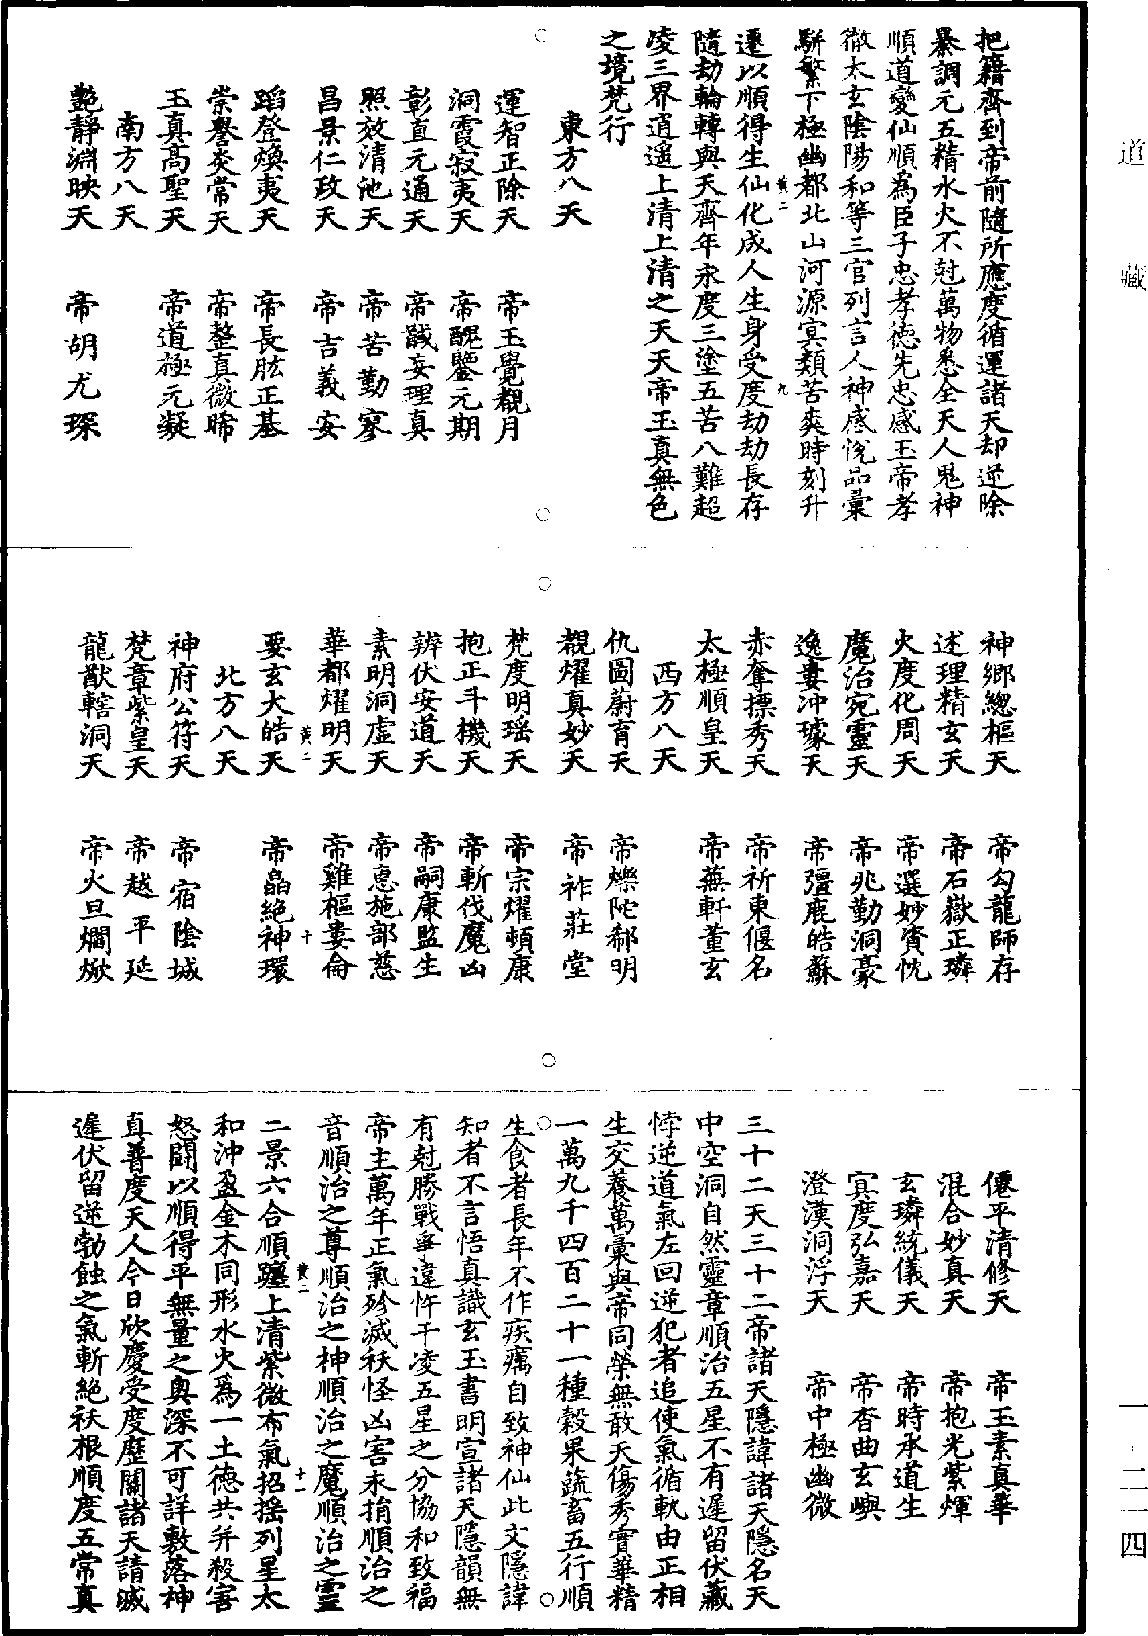 把籍齊到帝前隨所應度循運諸天却逆除
綦調元五精水火不尅萬物悉全天人鬼神
順道變仙順為臣子忠孝德先忠感玉帝孝
徹太玄陰陽和等三官列言人神感悅品彙
駢繁下極幽都北山河源冥類苦爽時刻升
黃二 九
遷以順得生仙化成人生身受度劫劫長存
隨劫輪轉與天齊年永度三塗五苦八難超
凌三界逍遥上清上清之天天帝玉真無色
之境梵行
東方八天
運智正除天 帝玉覺覩月
洞霞寂夷天 帝醜鑒元期
彰直元通天 帝誠妄理真
照效清池天 帝苦勤寥
昌景仁政天 帝吉義安
蹈登煥夷天 帝長肱正基
崇譽炎常天 帝整真微晞
玉真高聖天 帝道極元凝
南方八天
艶靜淵映天 帝胡尤琛
神鄉總樞天 帝勾龍師存
述理精玄天 帝石嶽正璘
火度化周天 帝選妙資忱
魔治宛靈天 帝兆勤洞豪
逸妻冲璩天 帝彊庭皓蘇
赤奪摽秀天 帝祈東偃名
太極順皇天 帝蕪軒董玄
西方八天
仇圖蔚育天 帝爍陀郝明
覩燿真妙天 帝祚莊堂
梵度明瑶天 帝宗燿頓康
抱正斗機天 帝斬伐魔凶
辨伏安道天 帝嗣康監生
素明洞虛天 帝惠施部慈
華都燿明天 帝雞樞婁倫
黃二 十
要玄大皓天 帝皛絕神環
北方八天
神府公符天 帝宿陰城
梵章紫皇天 帝越平延
龍猷轄洞天 帝火旦爓焮
僊平清修天 帝玉素真華
混合妙真天 帝抱光紫煇
玄璘統儀天 帝時承道生
冥度弘嘉天 帝杳曲玄嶼
澄漢洞浮天 帝中極幽微
三十二天三十二帝諸天隱諱諸天隱名天
中空洞自然靈章順治五星不有遲留伏藏
悖逆道氣左回逆犯者追使氣循軌由正相
生交養萬彙與帝同榮無敢天傷秀實華精
一萬九千四百二十一種穀果蔬畜五行順
生食者長年不作疾癘自致神仙此文隱諱
知者不言悟真識玄玉書明宣諸天隱韻無
有尅勝戰爭違忤干凌五星之分協和致福
帝主萬年正氣殄滅秡怪凶害未揹順治之
音順治之尊順治之神順治之魔順治之靈
黃二 十一
二景六合順躔上清紫微布氣招搖列星太
和沖盈金木同形水火爲一土德共并殺害
怒鬪以順得平無量之奥深不可詳敷落神
真普度天人今日欣慶受度歷關諸天請滅
遲伏留逆勃蝕之氣斬絕祅根順度五常真
道藏
一·二一四